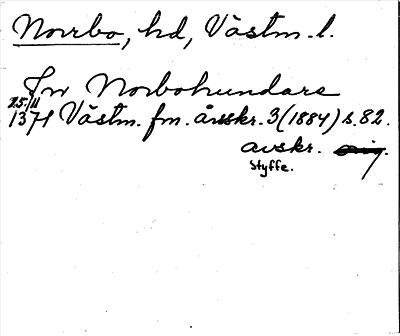 Norrbo, hd, Västm. l.
Jn Norbohundare
25/11
1371 Västm. fm. årsskr. 3 (1884) s. 82.
avskr. orig.
Styffe.